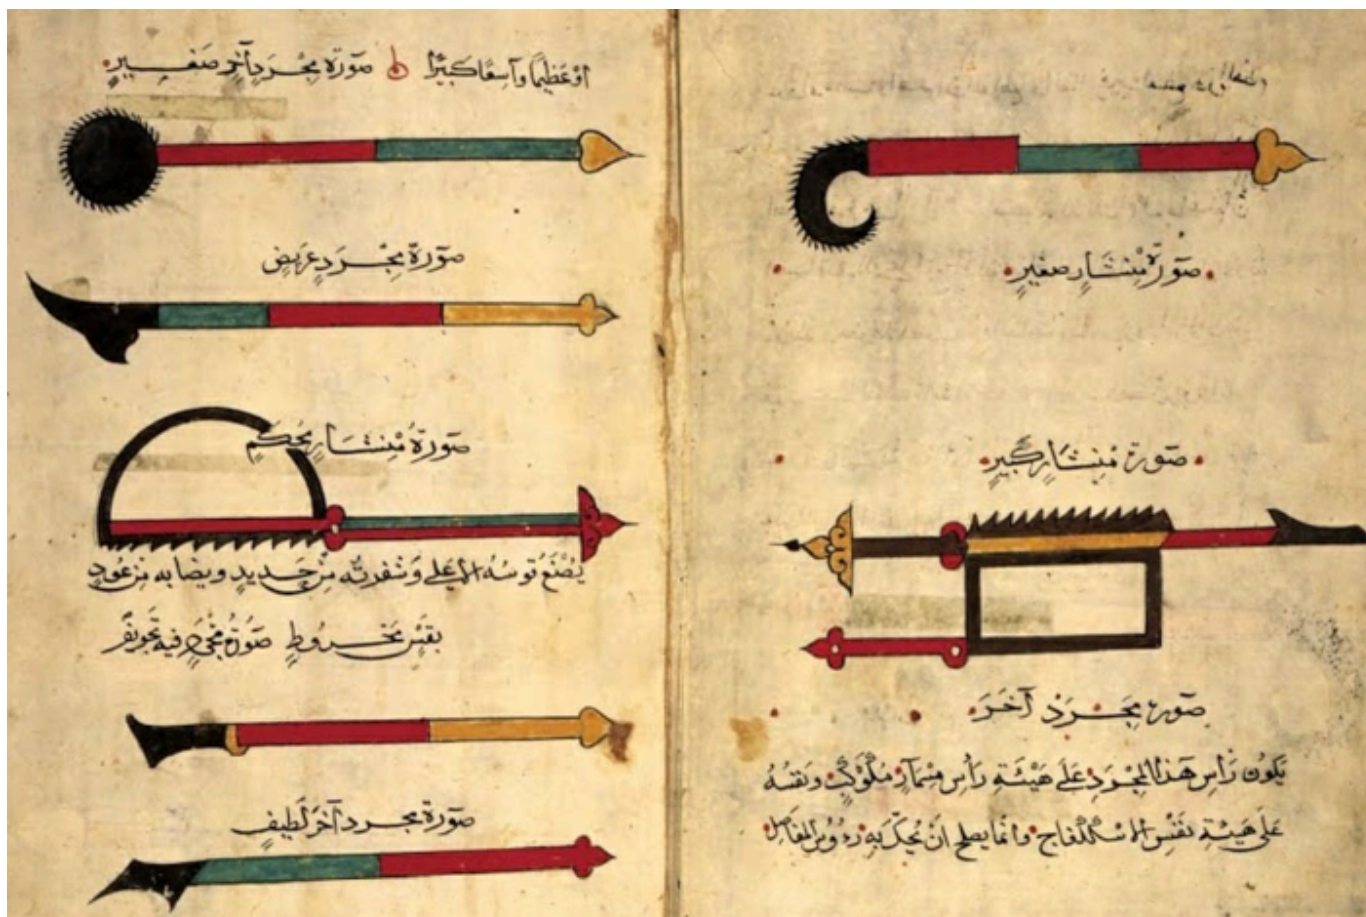 صورة منشار صغير
صورة منشار كبير
صورة مجرد آخر
يكون رأس هذا المجرد على هيئة رأس مسمار مكوكب ونقشه
على هيئة نقش الإسكلفاج وإنما يصلح أن يحك به رءوس المفاصل
أو عظيما واسعا كبيرا صورة مجرد آخر صغير
صورة مجرد عريض
صورة منشار محكم
يصنع قوسه الأعلى وشفرته من حديد ونصابه من عود
بقس مخروط صورة مجرد فيه تجويف
صورة مجرد آخر لطيف